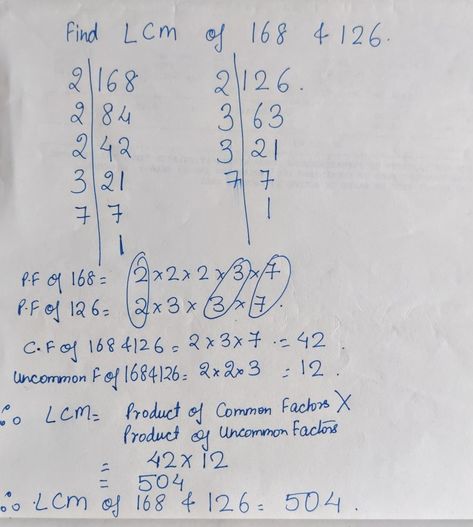 Find LCM of 168 & 126.
2|168 2|126.
2|84 3|63
2|42 3|21
3|21 7|7
7|7 |1
|1
P.F of 168 = 2×2×2×3×7
P.F of 126 = 2×3×3×7.
C.F of 168 & 126 = 2×3×7 = 42.
Uncommon F of 168 & 126 = 2×2×3 = 12.
∴ LCM = Product of Common Factors X
Product of Uncommon Factors
= 42×12
= 504
∴ LCM of 168 & 126 = 504.